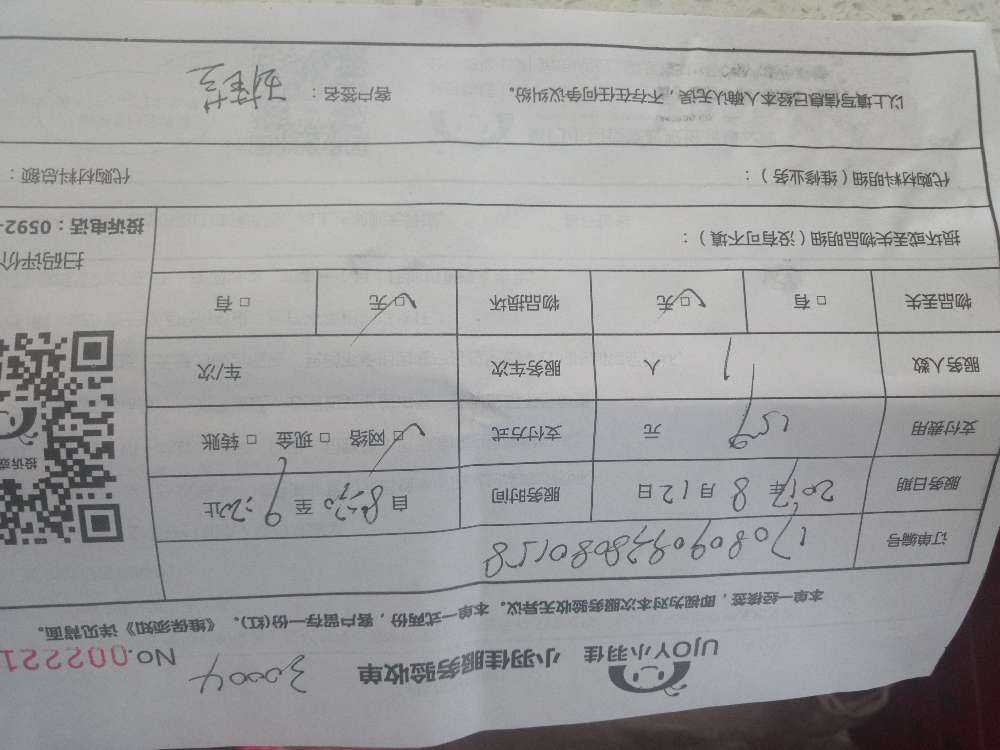 UJOY小羽佳 小羽佳服务验收单 30004 No.002221
本单一经接签，即视为对本次服务验收无异议。本单一式两份，客户留存一份(红)。《维保须知》详见背面。
订单编号
服务日期 2017年 8 月 12 日 服务时间 自 8:20 至 9:20止
支付费用 159 元 支付方式 ☑ 网络 □ 现金 □ 转账
服务人数 1 人 服务车次 车/次
物品丢失 □ 有 ☑ 无 物品损坏 ☑ 无 □ 有
损坏或丢失物品明细（没有可不填）：
投诉或
扫码评价
投诉电话：0592-
代购材料明细（维修业务）： 代购材料总额：
以上填写信息已经本人确认无误，不存在任何争议纠纷。 客户签名：